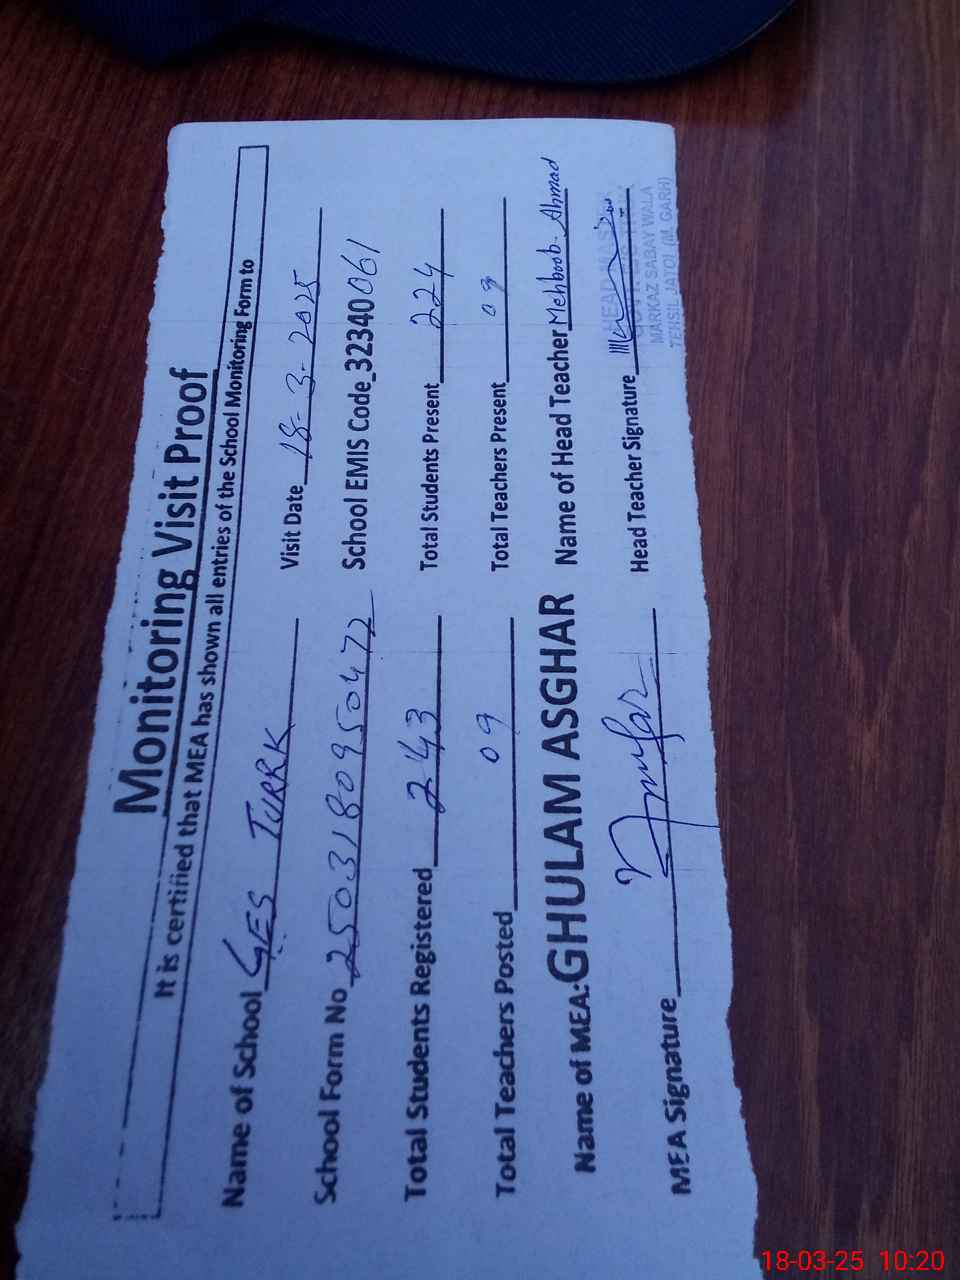 Monitoring Visit Proof
It is certified that MEA has shown all entries of the School Monitoring Form to
Name of School GES TURRK Visit Date 18-3-2025
School Form No 2503180950472 School EMIS Code 32340061
Total Students Registered 243 Total Students Present 224
Total Teachers Posted 09 Total Teachers Present 09
Name of MEA: GHULAM ASGHAR Name of Head Teacher Mehboob Ahmad
MEA Signature Head Teacher Signature
MARKAZ SABAY WALA
TEHSIL JATOI (M. GARH)
18-03-25 10:20